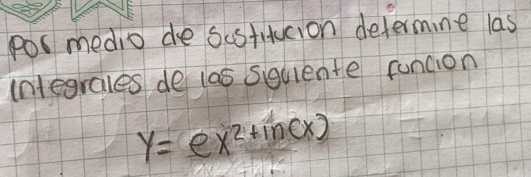 Por medio de sustitucion determine las
integrales de las siguiente funcion
y = ex²+ln(x)